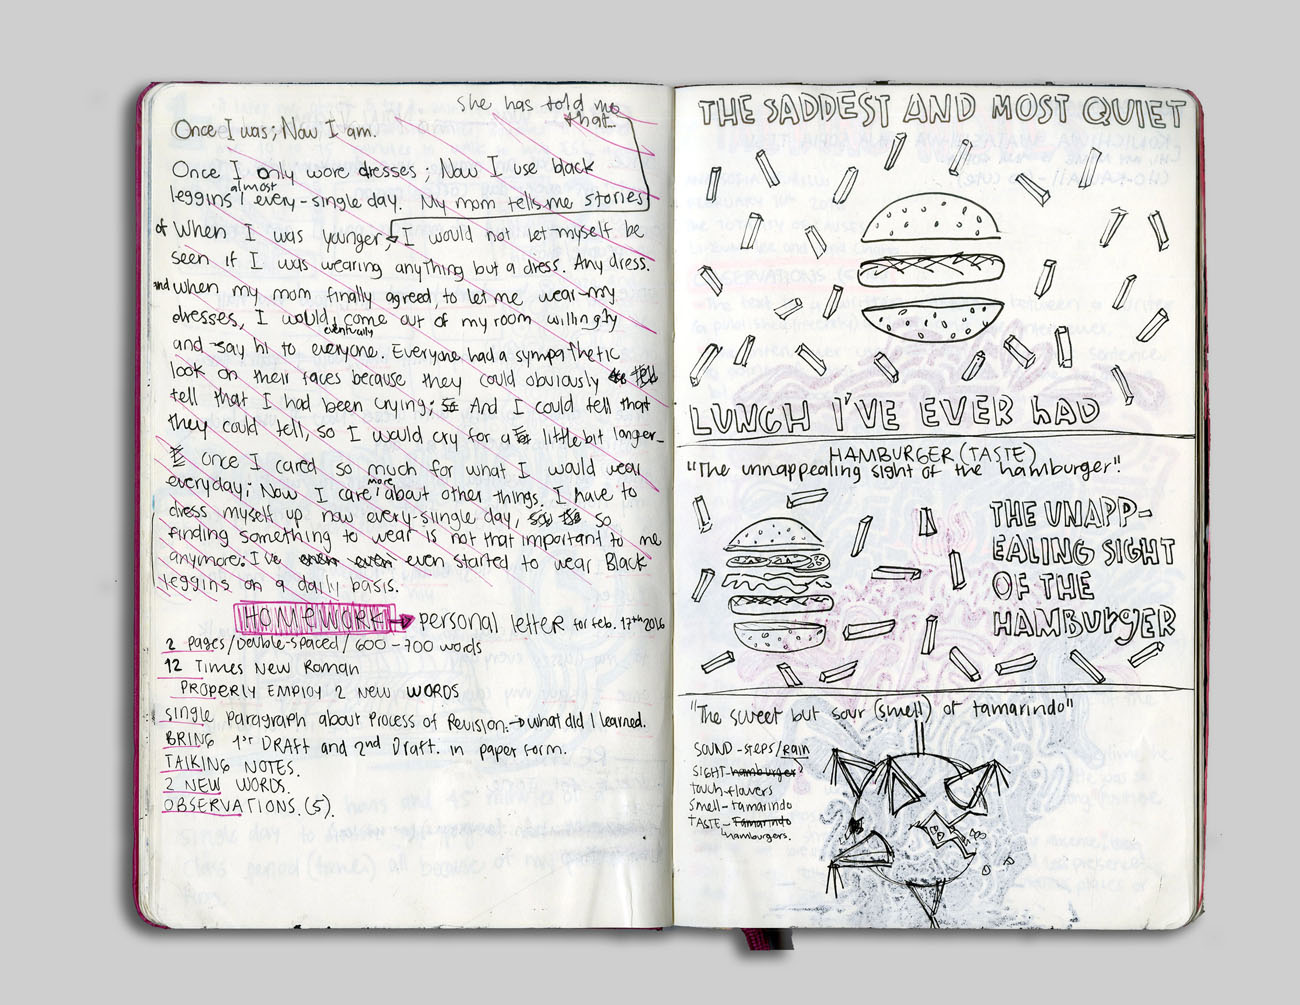 she has told me
that...
Once I was; Now I am.
Once I only wore dresses; Now I use black
leggins almost every-single day. My mom tells me stories
of When I was younger, I would not let myself be
seen if I was wearing anything but a dress. Any dress.
and when my mom finally agreed, to let me wear my
dresses, I would eventually come out of my room willingly
and say hi to everyone. Everyone had a sympathetic
look on their faces because they could obviously
tell that I had been crying; And I could tell that
they could tell, so I would cry for a little bit longer.
once I cared so much for what I would wear
everyday; Now I care more about other things. I have to
dress myself up now every-siingle day, so
finding something to wear is not that important to me
anymore. I've even started to wear Black
leggins on a daily basis.
HOMEWORK → personal letter for Feb. 17th 2016
2 pages/Double-spaced/600-700 words
12 Times New Roman
PROPERLY EMPLOY 2 NEW WORDS
single paragraph about Process of Revision. → what did I learned.
BRING 1st DRAFT and 2nd Draft. in paper form.
TALKING NOTES.
2 NEW WORDS.
OBSERVATIONS. (5).
THE SADDEST AND MOST QUIET
LUNCH I'VE EVER hAD
HAMBURGER (TASTE)
"The unnappealing sight of the hamburger".
THE UNAPP-
EALING SIGHT
OF THE
HAMBURgER
"The sweet but sour (smell) of tamarindo"
SOUND - steps/rain
SIGHT - hamburger
touch - flavers
smell - tamarindo
TASTE - Tamarindo
hamburgers.